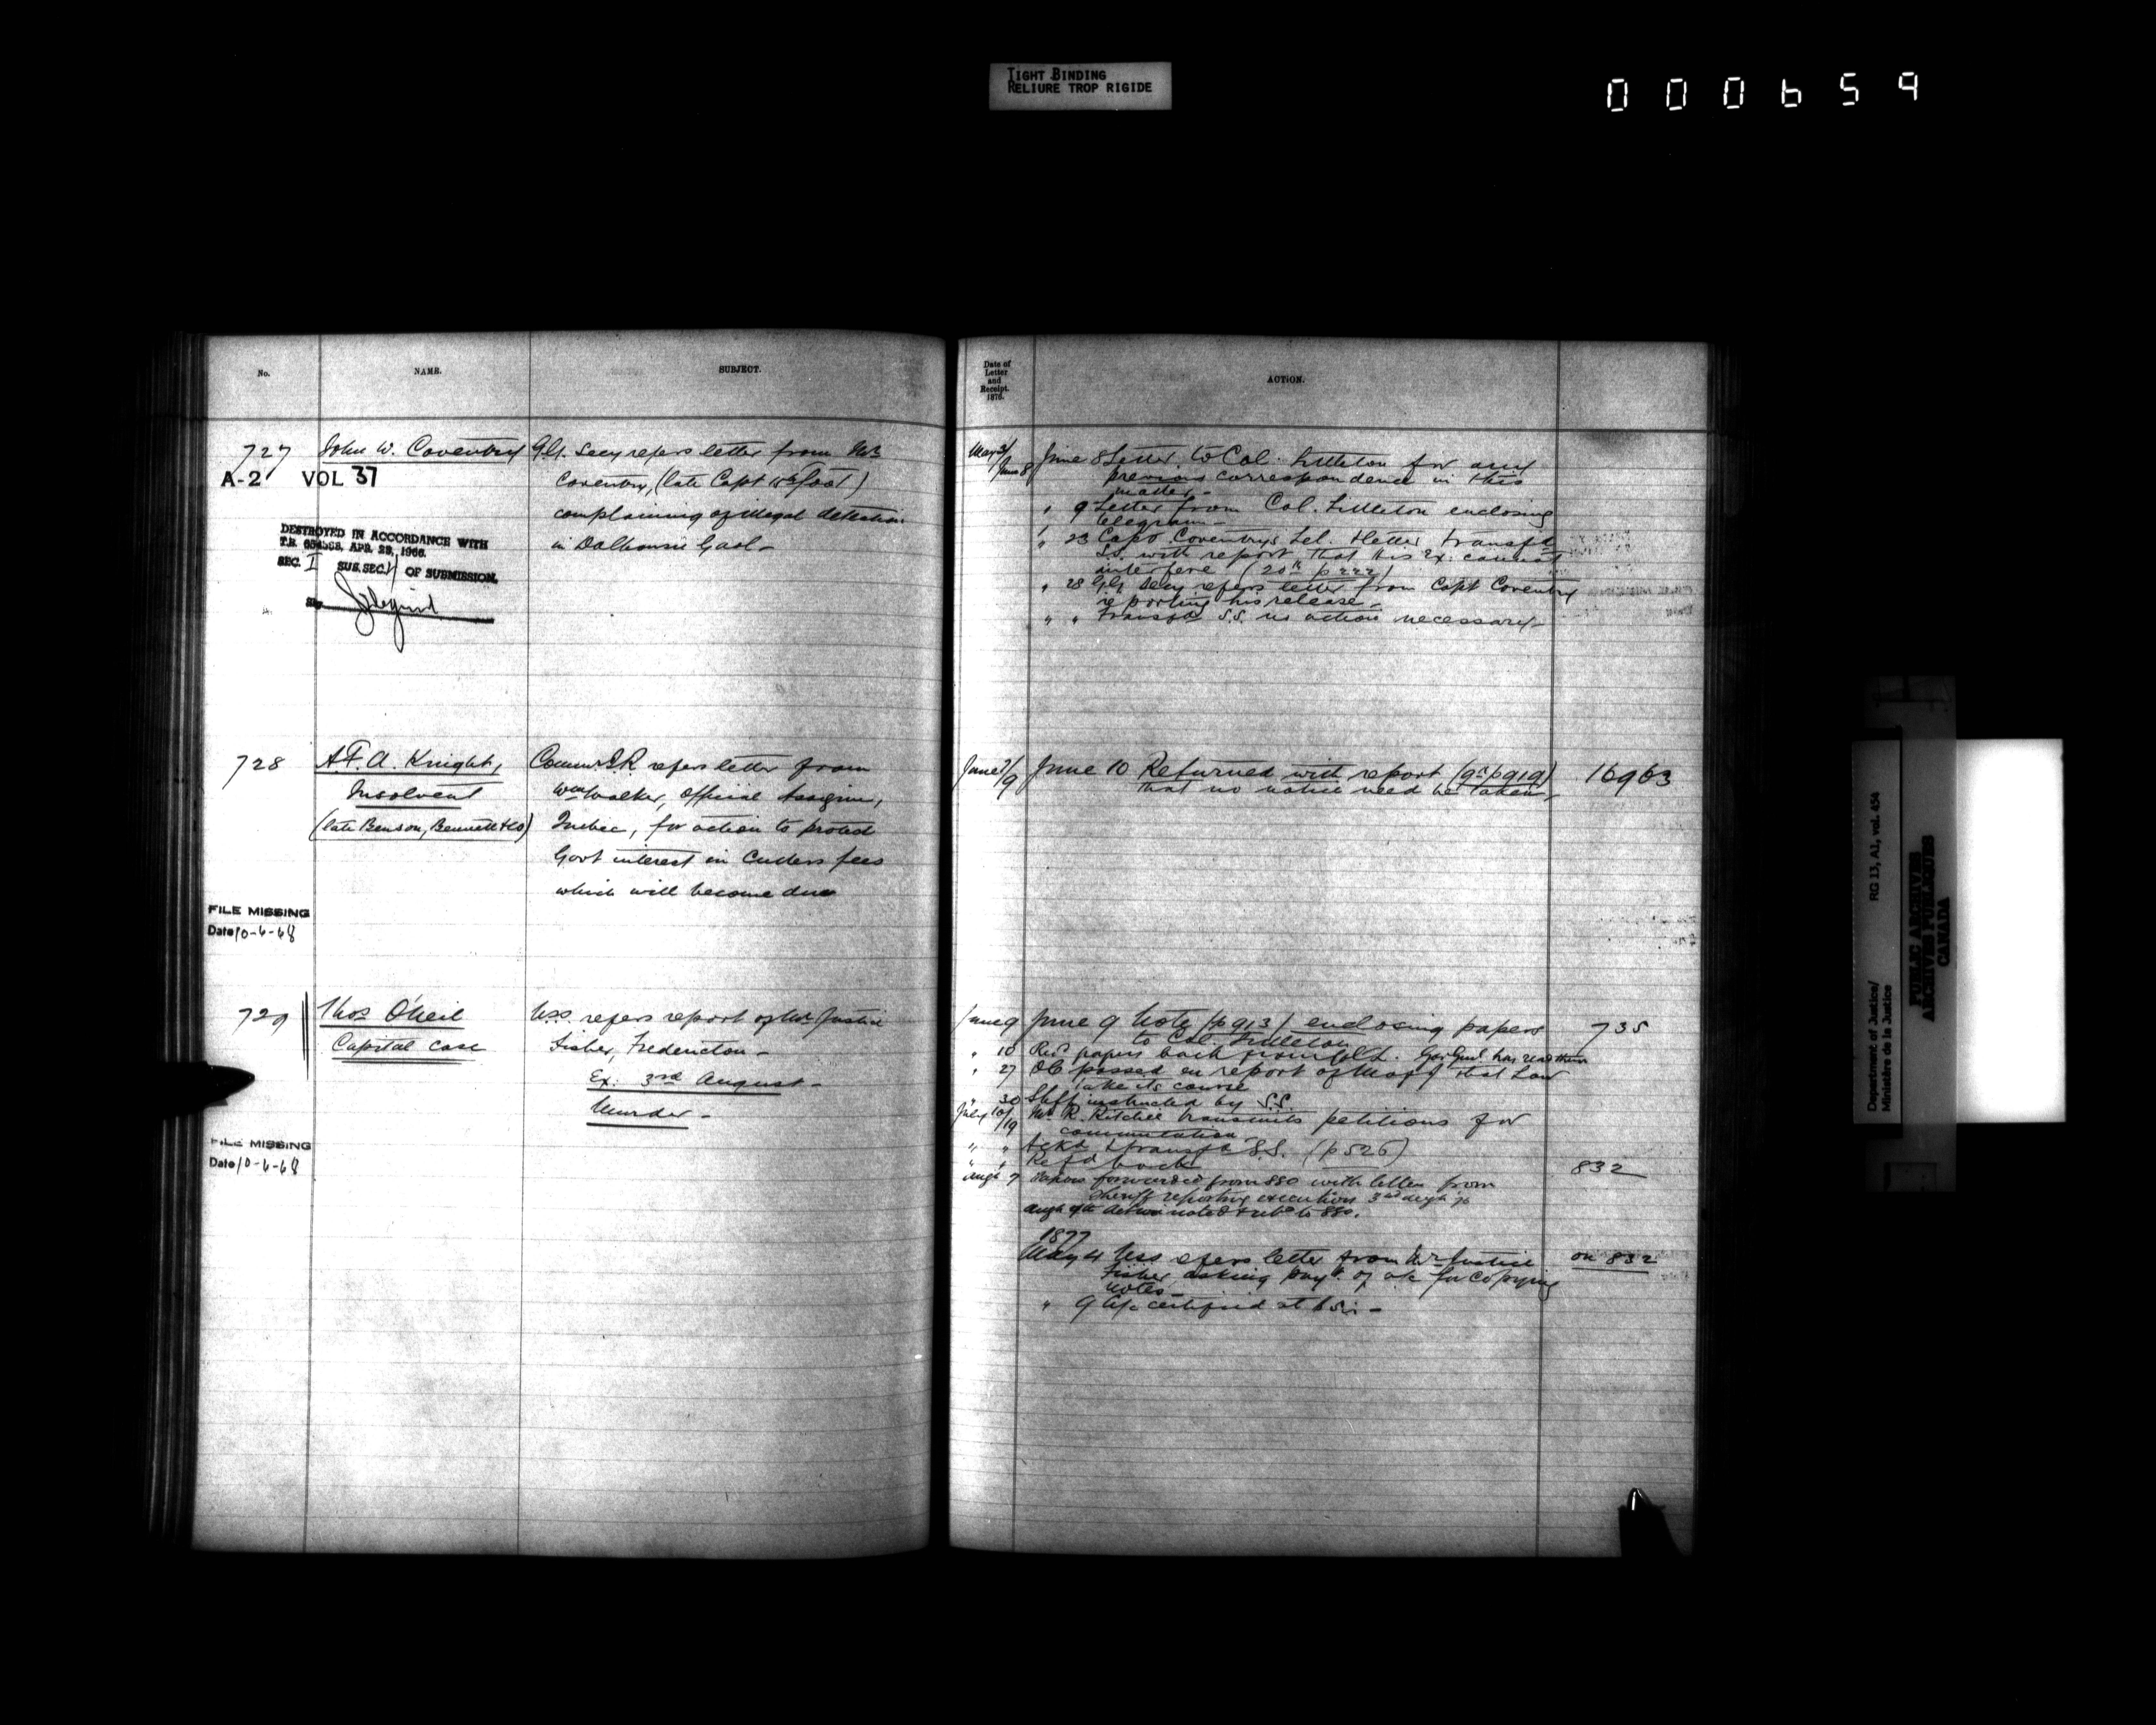 TIGHT BINDING
RELIURE TROP RIGIDE
000659
No.
NAME.
SUBJECT.
727
John W. Coventry
G.G. Secy refers letter from Mr
Coventry, (late Capt foot)
complaining of illegal detention
in Dalhousie Gaol -
A-2 VOL 37
DESTROYED IN ACCORDANCE WITH
T.B. APR. 29, 1966.
SEC. I SUB. SEC. OF SUBMISSION.
728
A.F.A. Knight,
Insolvent
(late Benson, Bennett & Co)
Commr I.R. refers letter from
Wm Walker, Official Assignee,
Quebec, for action to protect
Govt interest in Cullers fees
which will become due
FILE MISSING
Date 10-6-68
729
Thos O'Neil
Capital Case
U.S.S. refers report of Mr Justice
Fisher, Fredericton -
Ex: 3rd August -
Murder -
FILE MISSING
Date 10-6-68
Date of
Letter
and
Receipt.
1876.
ACTION.
May 31/
June 8
June 8 Letter to Col. Littleton for any
previous correspondence in this
matter -
" 9 Letter from Col. Littleton enclosing
telegram -
" 23 Capt Coventry's tel. & letter transfd
S.S. with report that His Ex: cannot
interfere (20th p 222)
" 28 G.G. Secy refers letter from Capt Coventry
reporting his release -
" " Transfd S.S. no action necessary -
June 7/9
June 10 Returned with report (9th p 919)
that no notice need be taken -
16963
June 9
June 9 Note (p 913) enclosing papers
to Col. Littleton
735
" 10 Recd papers back from Col L. Gov Genl has read them
" 27 OC passed on report of that Law
take its course
" 30 Shff instructed by S.S.
July 10/19
Mr R. Ritchie transmits petitions for
commutation
" " Ackd & transfd S.S. (p 526)
" " Refd back
832
Augt 7 Papers forwarded from SSO with letter from
Sheriff reporting execution 3rd Augt
1877
May 4 USS refers letter from Mr Justice
Fisher asking payt. of a/c for copying
notes -
on 832
" 9 A/c certified at
Department of Justice/
Ministère de la Justice
RG 13, A1, vol. 454
PUBLIC ARCHIVES
ARCHIVES PUBLIQUES
CANADA